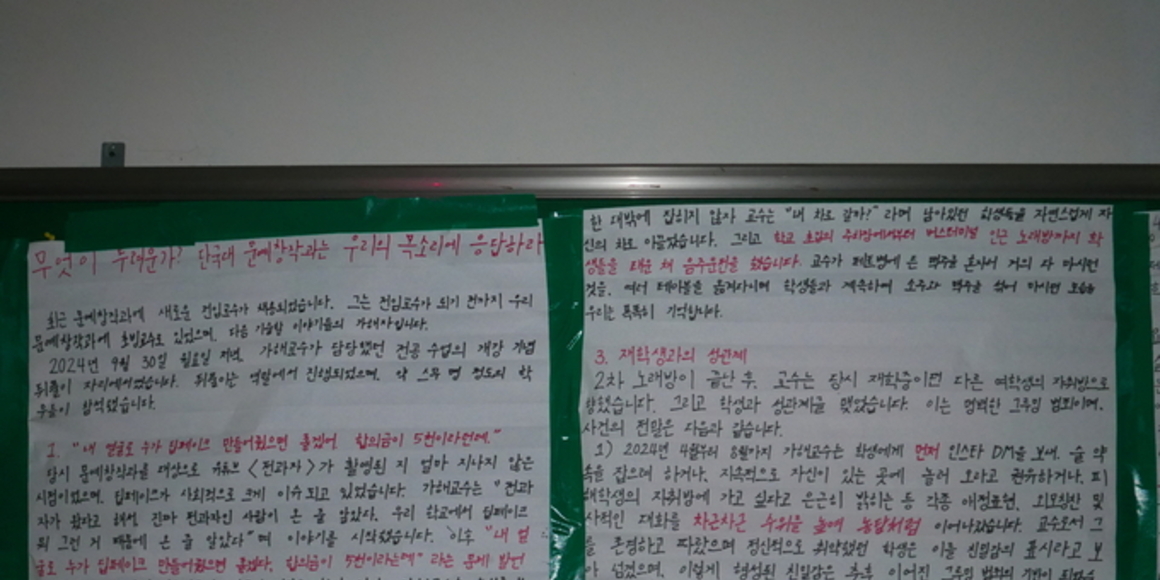 무엇이 두려운가? 단국대 문예창작과는 우리의 목소리에 응답하라
최근 문예창작과에 새로운 전임교수가 채용되었습니다. 그는 전임교수가 되기 전까지 우리
문예창작과에 초빙교수로 있었으며, 다음 가술할 이야기들의 가해자입니다.
2024년 9월 30일 월요일 저녁, 가해교수가 담당했던 전공 수업의 개강 기념
뒤풀이 자리에서였습니다. 뒤풀이는 역말에서 진행되었으며, 약 스무 명 정도의 학
우들이 참석했습니다.
1. "내 얼굴로 누가 딥페이크 만들어줬으면 좋겠어, 합의금이 5천이라던데."
당시 문예창작과를 대상으로 유튜브 <전과자>가 촬영된 지 얼마 지나지 않은
시점이었으며, 딥페이크가 사회적으로 크게 이슈되고 있었습니다. 가해교수는 "전과
자가 왔다고 해서 진짜 전과자인 사람이 온 줄 알았다. 우리 학교에서 딥페이크
뭐 그런 거 때문에 온 줄 알았다"며 이야기를 시작했습니다. 이후 "내 얼
굴로 누가 딥페이크 만들어줬으면 좋겠다, 합의금이 5천이라는데" 라는 등에 발언
한 대밖에 잡히지 않자 교수는 "내 차로 갈까?" 라며 남아있던 학생들을 자연스럽게 자
신의 차로 이끌었습니다. 그리고 학교 초입의 주차장에서부터 버스터미널 인근 노래방까지 학
생들을 태운 채 음주운전을 했습니다. 교수가 페트병에 든 맥주를 혼자서 거의 다 마시던
것을, 여러 테이블을 옮겨다니며 학생들과 계속하여 소주와 맥주를 섞어 마시던 모습을
우리는 똑똑히 기억합니다.
3. 재학생과의 성관계
2차 노래방이 끝난 후, 교수는 당시 재학중이던 다른 여학생의 자취방으로
향했습니다. 그리고 학생과 성관계를 맺었습니다. 이는 명백한 그루밍 범죄이며,
사건의 전말은 다음과 같습니다.
1) 2024년 4월부터 8월까지 가해교수는 학생에게 먼저 인스타 DM을 보내, 술 약
속을 잡으려 하거나, 지속적으로 자신이 있는 곳에 놀러 오라고 권유하거나, 피
해학생의 자취방에 가고 싶다고 은근히 밝히는 등 각종 애정표현, 외모칭찬 및
사적인 대화를 차근차근 수위를 높여 농담처럼 이어나갔습니다. 교수로서 그
를 존경하고 따랐으며 정신적으로 취약했던 학생은 이를 친밀감의 표시라고 보
아 넘겼으며, 이렇게 형성된 친밀감은 추후 이어진 그루밍 범죄의